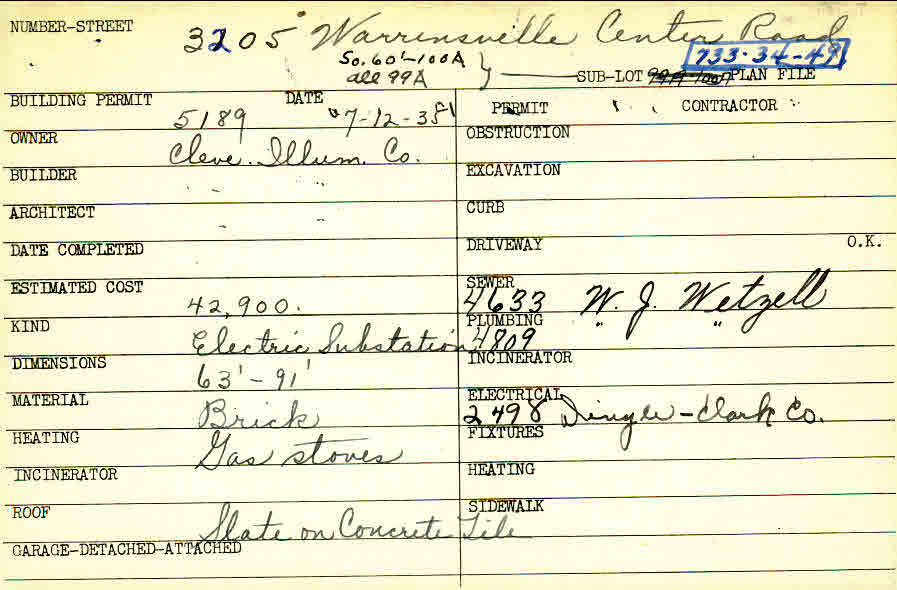 NUMBER-STREET 3205 Warrensville Center Road
So. 60'-100A
all 99A } SUB-LOT 99A-100A PLAN FILE 733-34-49
BUILDING PERMIT 5189 DATE 7-12-38 PERMIT CONTRACTOR
OWNER Cleve. Illum. Co. OBSTRUCTION
BUILDER EXCAVATION
ARCHITECT CURB
DATE COMPLETED DRIVEWAY O.K.
ESTIMATED COST 42,900. SEWER 4633 W. J. Wetzell
KIND Electric Substation PLUMBING 4809 " "
DIMENSIONS 63'-91' INCINERATOR
MATERIAL Brick ELECTRICAL 2498 Dingle-Clark Co.
HEATING Gas stoves FIXTURES
INCINERATOR HEATING
ROOF Slate on Concrete Tile SIDEWALK
GARAGE-DETACHED-ATTACHED